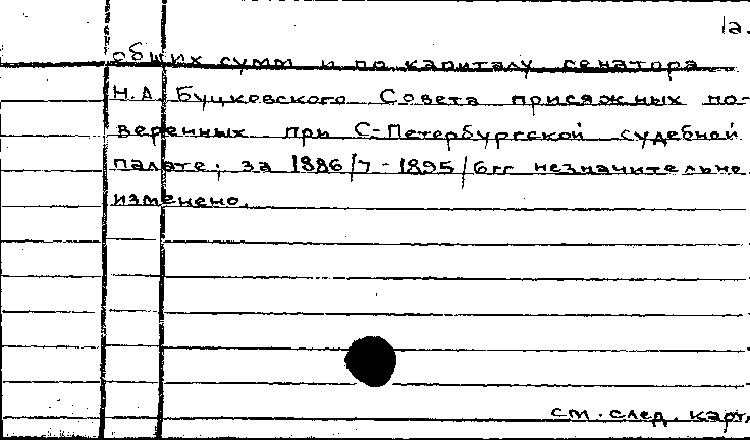 1а.
общих сумм и по капиталу сенатора
Н.А. Буцковского Совета присяжных по-
веренных при С-Петербургской судебной
палате; за 1886/7-1895/6гг незначительно
изменено.
см. след. карт.